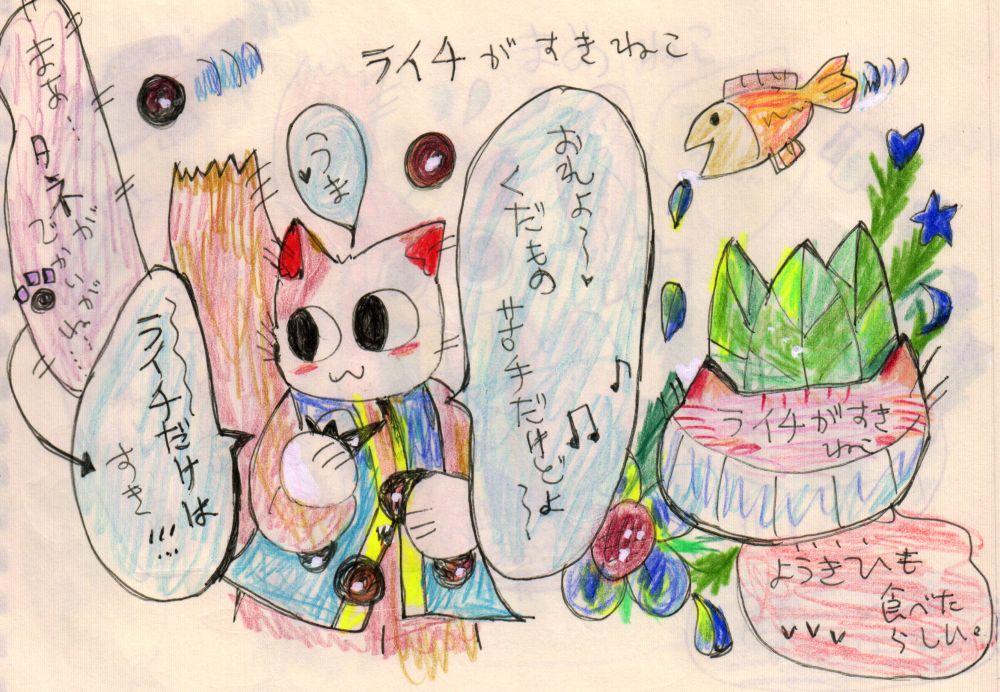 ライチがすきねこ
うま♥
おれよ〜♥
くだもの
苦手だけどよ〜
ライチだけは
すき…!!!
まぁ…タネが
でかいがね…
ライチがすき
ねこ
ようきひも
食べた
らしい。